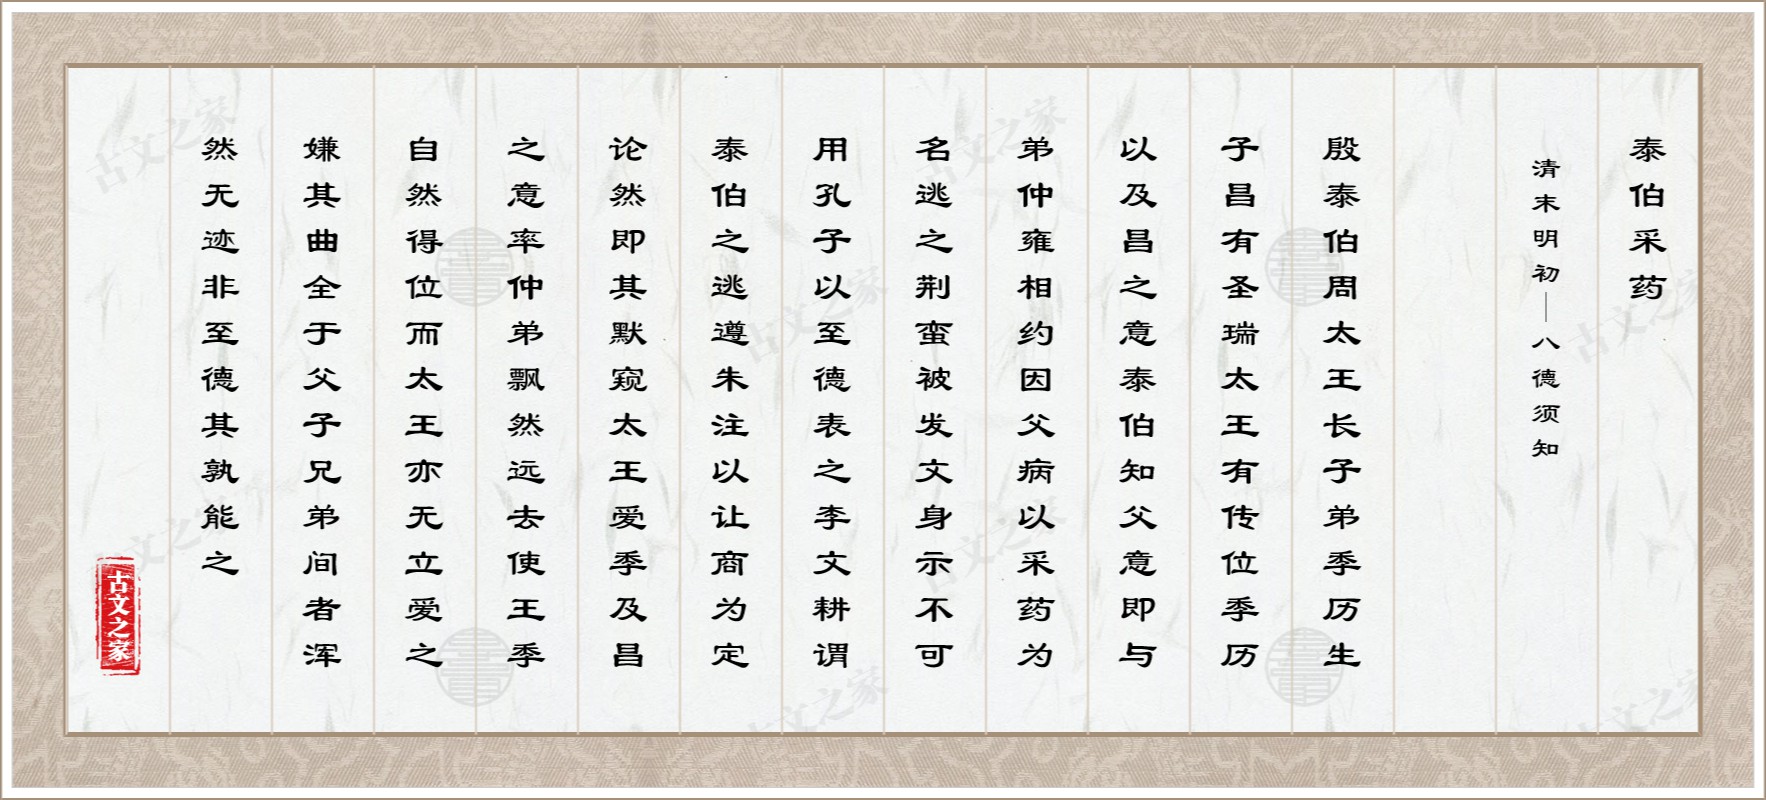 泰伯采药
清末明初—八德须知
殷泰伯周太王长子弟季历生
子昌有圣瑞太王有传位季历
以及昌之意泰伯知父意即与
弟仲雍相约因父病以采药为
名逃之荆蛮被发文身示不可
用孔子以至德表之李文耕谓
泰伯之逃遵朱注以让商为定
论然即其默窥太王爱季及昌
之意率仲弟飘然远去使王季
自然得位而太王亦无立爱之
嫌其曲全于父子兄弟间者浑
然无迹非至德其孰能之
古文之家